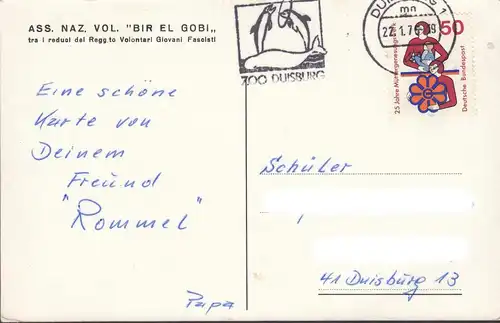 ASS. NAZ. VOL. "BIR EL GOBI„
tra i reduci del Regg.to Volontari Giovani Fascisti
ZOO DUISBURG
DUISBURG 1
mn
22.1.76
50
25 Jahre Müttergenesungswerk
Deutsche Bundespost
Eine schöne
Karte von
Deinem
Freund
"Rommel"
Papa
Schüler
41 Duisburg 13